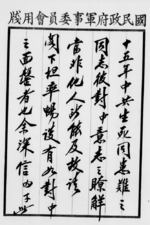 國民政府軍事委員會用牋
十五年中共生死同患難之
同志彼對中意志之瞭解
當非他人所能及故請
閣下坦率暢談有如對中
之面罄者也余深信由于此